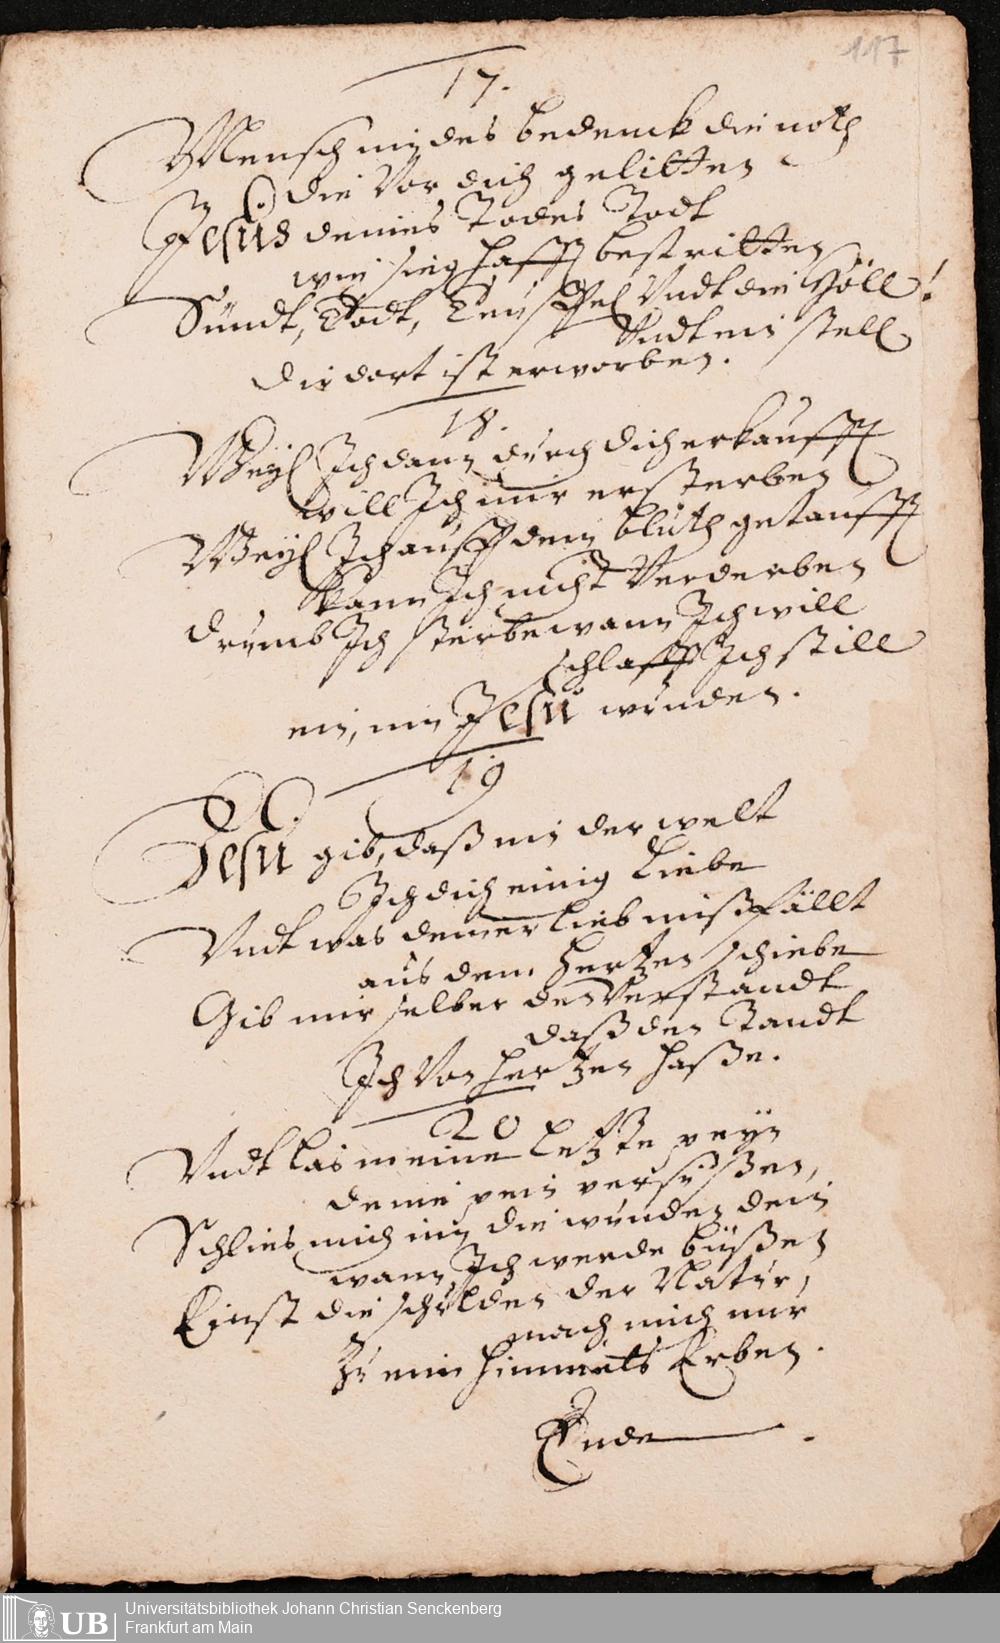 117
17.
Mensch mindes bedenck die noth
die Vor dich gelitten
Jesus deines Todes Todt
wie sieghafft bestritten
Sündt, Todt, Teuffel Vndt die Höll!
Vndt ein stell
die dort ist erworben.
18.
Weyl Ich dann durch dich erkaufft
will Ich nur ersterben
Weyl Ich auff dein bluth getaufft
Kann Ich nicht Verderben
drumb Ich sterbe wann Ich will
schlaff Ich still
ein, in Jesu wunden.
19
Jesu gib, daß in der welt
Ich dich einig Liebe
Vndt was deiner lieb mißfällt
aus dem hertzen schiebe
Gib mir selber den Verstandt
daß den Tandt
Ich Von hertzen haße.
20
Vndt las meine letzte peyn
deine pein versüßen,
Schlies mich in die wunden dein
wann Ich werde büßen
Einst die schulden der Natur,
mach mich nur
Zu ein himmels Erben.
Ende.
UB
Universitätsbibliothek Johann Christian Senckenberg
Frankfurt am Main